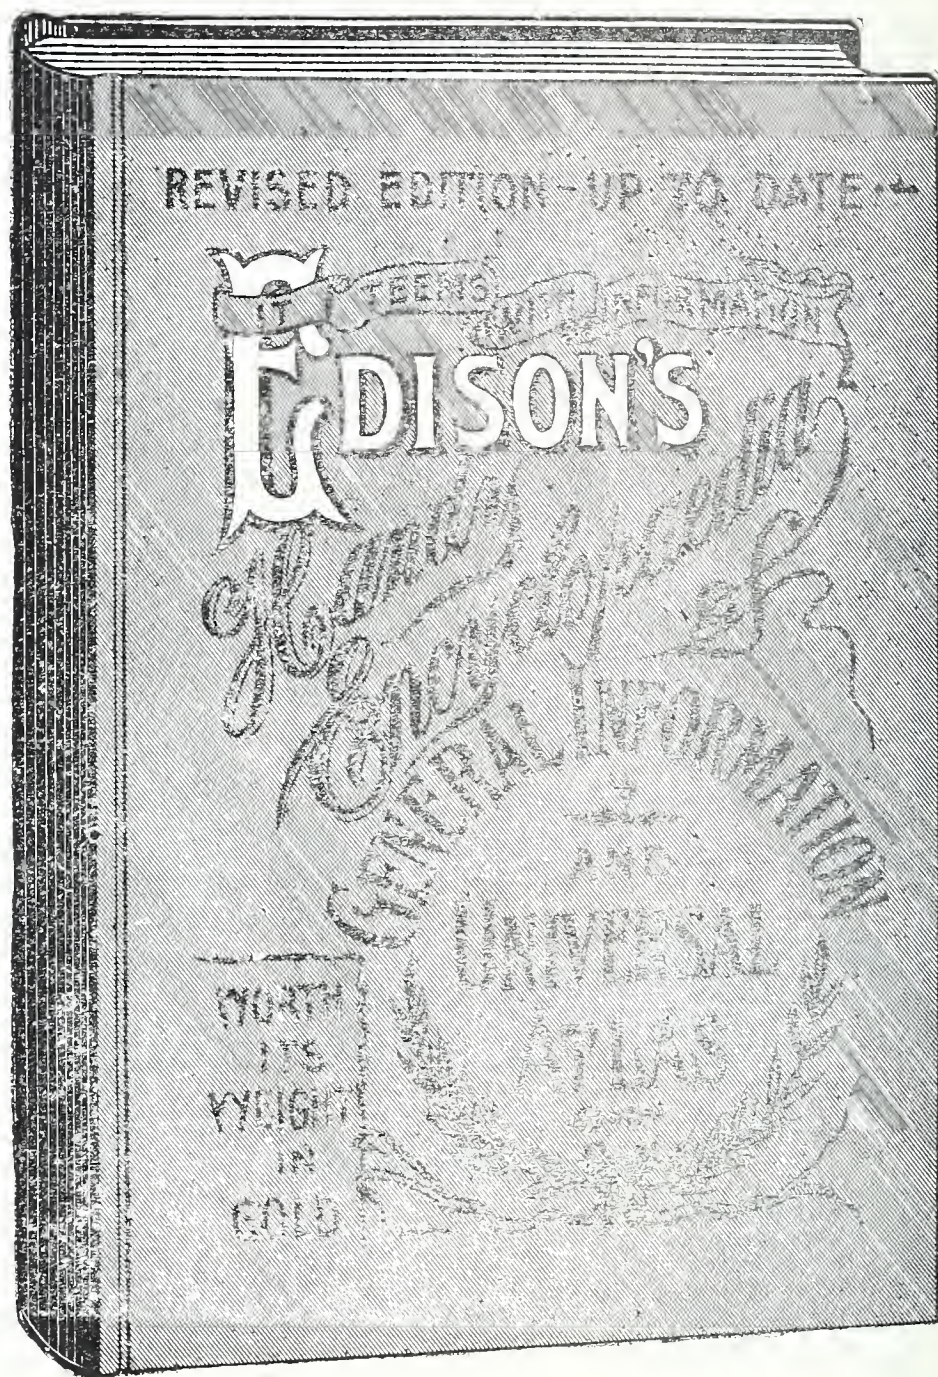 REVISED EDITION - UP TO DATE
IT TEEMS WITH INFORMATION
EDISON'S
Handy
Encyclopaedia
GENERAL INFORMATION
AND
UNIVERSAL
ATLAS
WORTH
ITS
WEIGHT
IN
GOLD